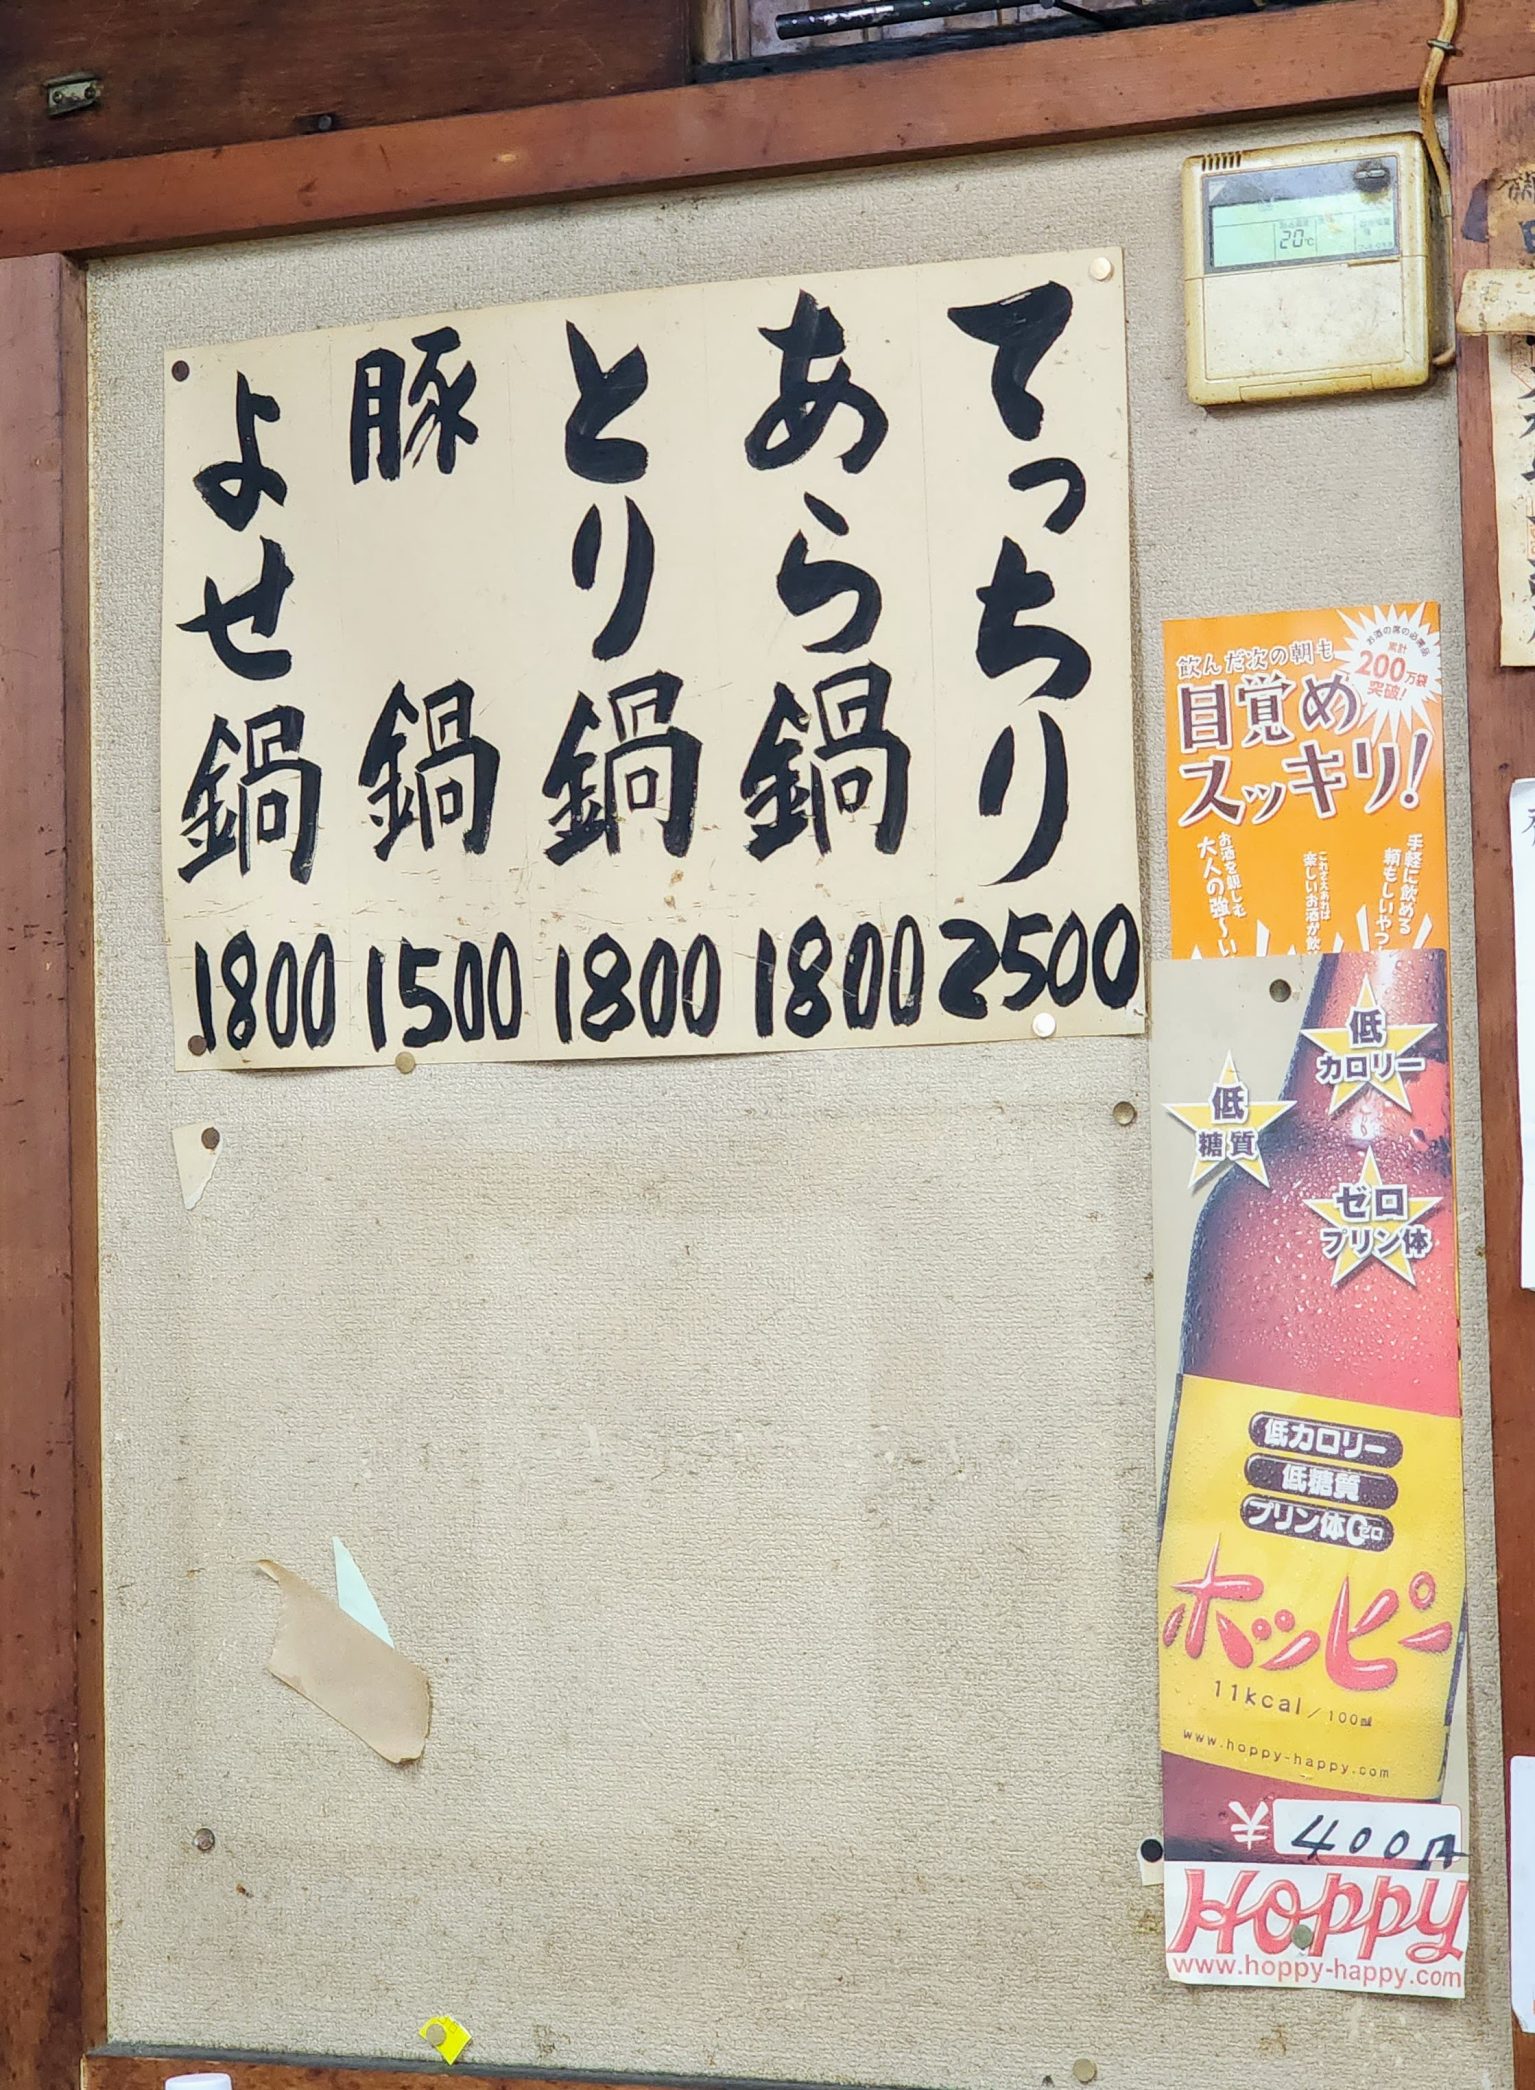 てっちり 2500
あら鍋 1800
とり鍋 1800
豚鍋 1500
よせ鍋 1800
20℃
お酒の席の必需品
累計
200万袋
突破!
飲んだ次の朝も
目覚め
スッキリ!
手軽に飲める
頼もしいやつ
これさえあれば
楽しいお酒が飲
お酒を親しむ
大人の強〜い
低
カロリー
低
糖質
ゼロ
プリン体
低カロリー
低糖質
プリン体0ゼロ
ホッピー
11kcal/100ml
www.hoppy-happy.com
¥400円
Hoppy
www.hoppy-happy.com